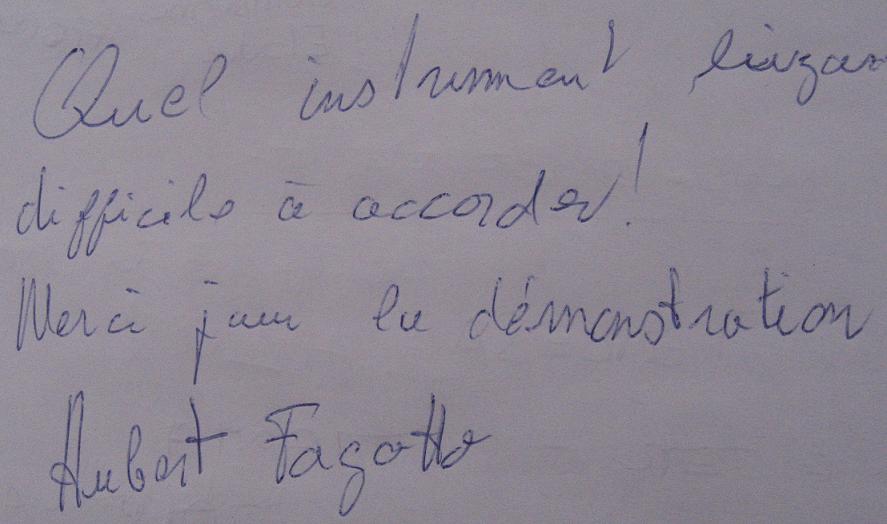 Quel instrument bizar
difficile à accorder!
Merci pour la démonstration
Hubert Fagotto